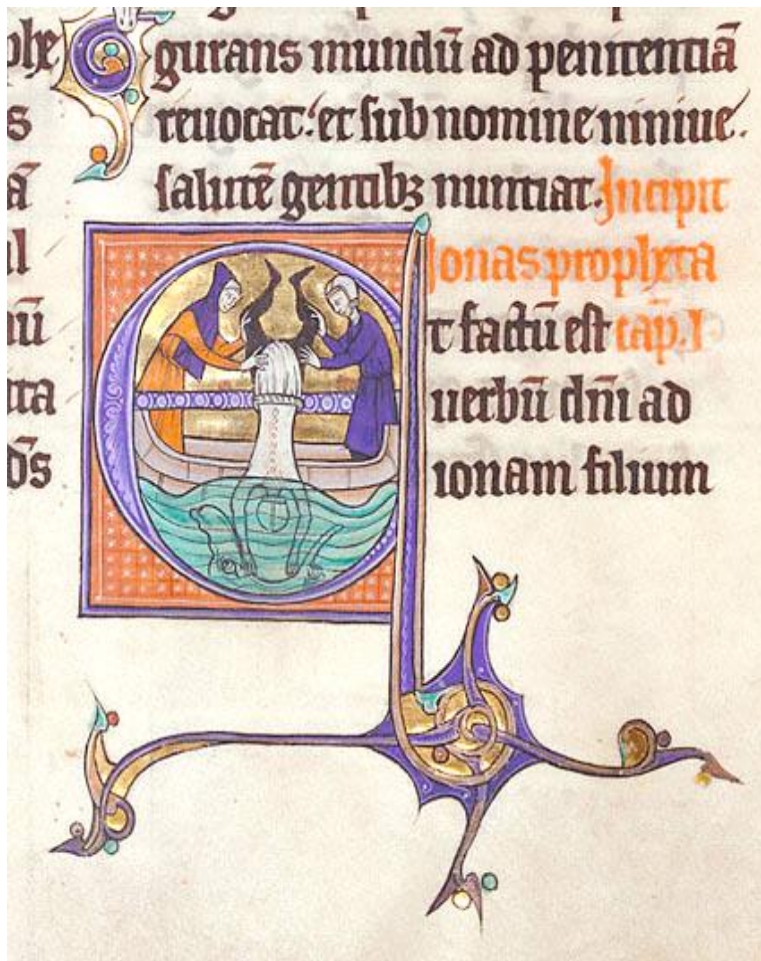 phe
s
ā
al
nū
cta
d̄s
gurans mundū ad penitentiā
reuocat: et sub nomine niniue.
salutē gentibꝫ nuntiat. Incipit
Jonas propheta
Et factū est cap. I
uerbū dn̄i ad
ionam filium